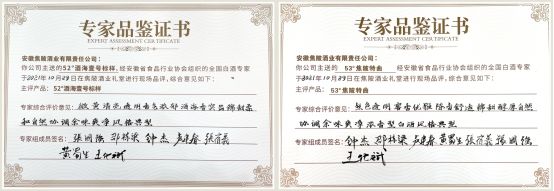 专家品鉴证书
EXPERT ASSESSMENT CERTIFICATE
安徽焦陂酒业有限责任公司：
你公司主送的 52°酒海壹号标样，经安徽省食品行业协会组织的全国白酒专家
于2021年10月29日在焦陂酒业礼堂进行现场品评，综合意见如下：
主评产品： 52°酒海壹号标样
专家综合评价意见：微黄清亮透明
和自然 协调 余味爽净 风格典型
专家组成员签名：
专家品鉴证书
EXPERT ASSESSMENT CERTIFICATE
安徽焦陂酒业有限责任公司：
你公司主送的 53°焦陂特曲 经安徽省食品行业协会组织的全国白酒专家
于2021年10月29日在焦陂酒业礼堂进行现场品评，综合意见如下：
主评产品： 53°焦陂特曲
专家综合评价意见：无色透明 窖香优雅 陈香舒适 绵甜醇厚 自然
协调 余味爽净 浓香型白酒风格典型
专家组成员签名：钟杰